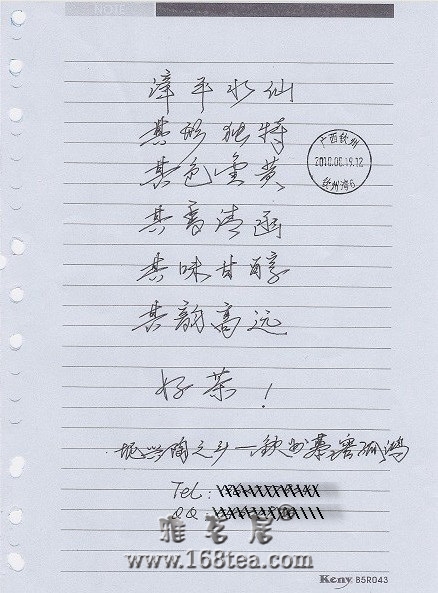 NOTE
漳平水仙
其形独特
其色金黄
其香清幽
其味甘醇
其韵高远
好茶！
坭兴陶之乡—钦州慕 孤鸿
广西钦州
2010.08.19.12
Tel：
QQ：
雅茗居
www.168tea.com
Keny B5R043